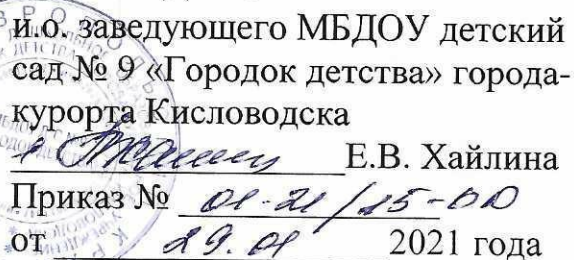 и.о. заведующего МБДОУ детский
сад № 9 «Городок детства» города-
курорта Кисловодска
Е.В. Хайлина
Приказ № 01-21/15-ОД
от 29.01 2021 года